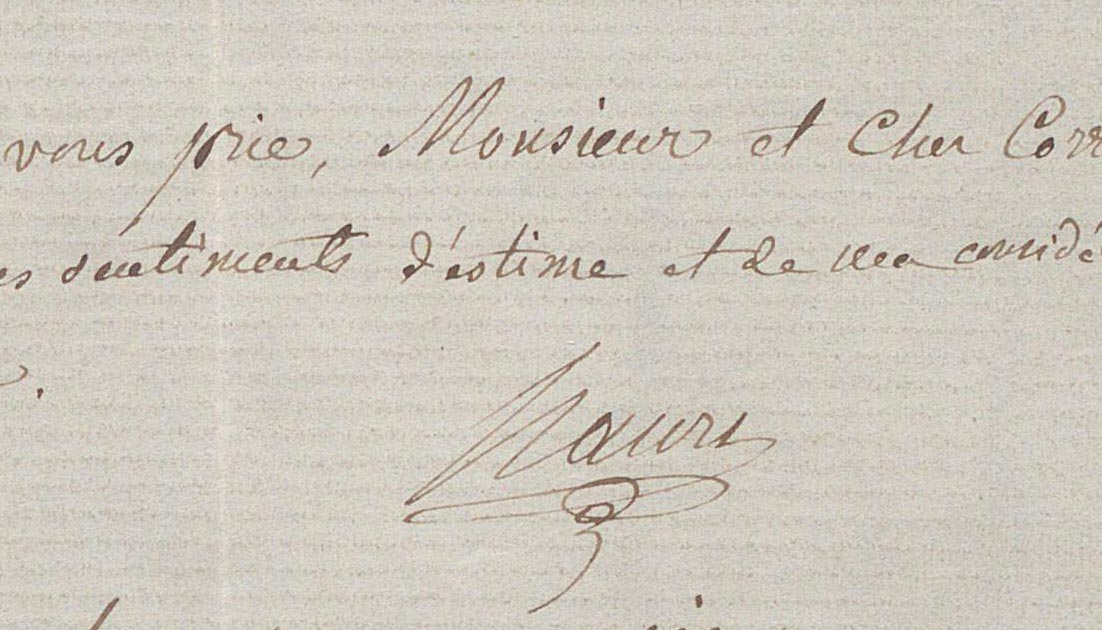 vous prie, Monsieur et Cher Corr
es sentiments d'estime et de ma considé
Nauri